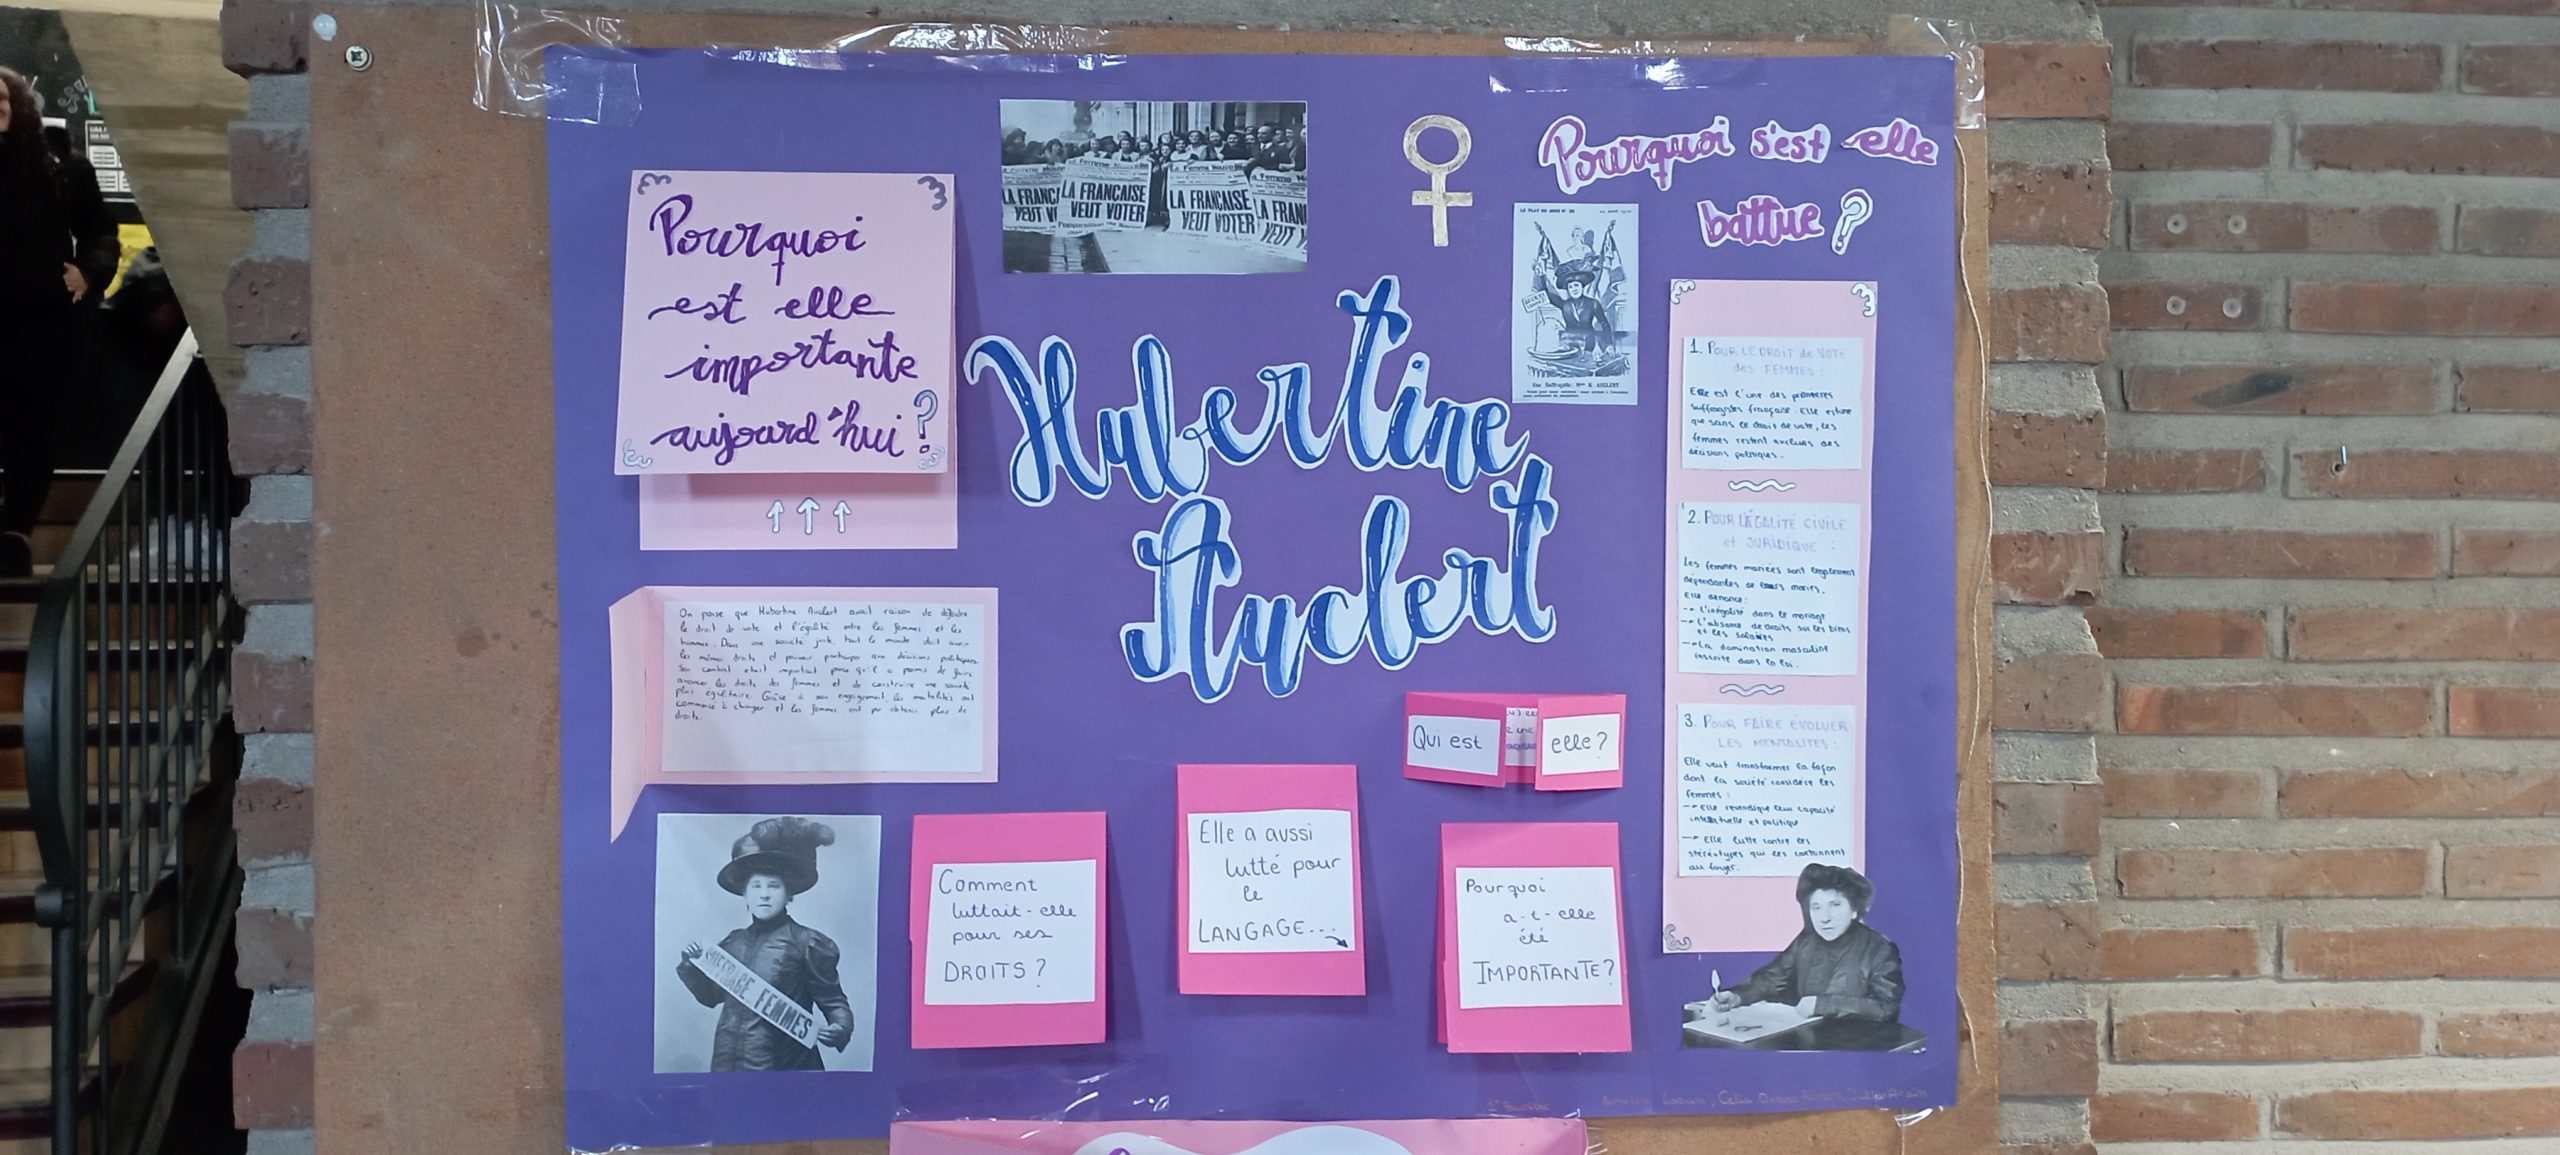 Pourquoi
est elle
importante
aujourd'hui?
On pense que Hubertine Auclert avait raison de défendre
le droit de vote et l'égalité entre les femmes et les
hommes. Dans une société juste, tout le monde doit avoir
les mêmes droits et pouvoir participer aux décisions politiques.
Son combat était important parce qu'il a permis de faire
avancer les droits des femmes et de construire une société
plus égalitaire. Grâce à son engagement, les mentalités ont
commencé à changer et les femmes ont pu obtenir plus de
droits.
La Femme Nouvelle
LA FRANÇAISE
VEUT VOTER
La Femme Nouvelle
LA FRANÇAISE
VEUT VOTER
Hubertine
Auclert
Pourquoi s'est elle
battue?
Une Suffragette: Mme H. AUCLERT
1. POUR LE DROIT de VOTE
des FEMMES:
Elle est l'une des premières
suffragistes française. Elle estime
que sans le droit de vote, les
femmes restent exclues des
décisions politiques.
2. POUR L'ÉGALITÉ CIVILE
et JURIDIQUE:
Les femmes mariées sont légalement
dépendantes de leurs maries.
Elle dénonce:
→ L'inégalité dans le mariage
→ L'absence de droits sur les biens
et les salaires
→ La domination masculine
inscrite dans la loi.
3. POUR FAIRE ÉVOLUER
LES MENTALITÉS:
Elle veut transformer la façon
dont la société considère les
femmes:
→ Elle revendique leur capacité
intellectuelle et politique
→ Elle lutte contre les
stéréotypes qui les cantonnent
au foyer.
Qui est
elle?
SUFFRAGE FEMMES
Comment
luttait-elle
pour ses
DROITS?
Elle a aussi
lutté pour
le
LANGAGE...
Pourquoi
a-t-elle
été
IMPORTANTE?